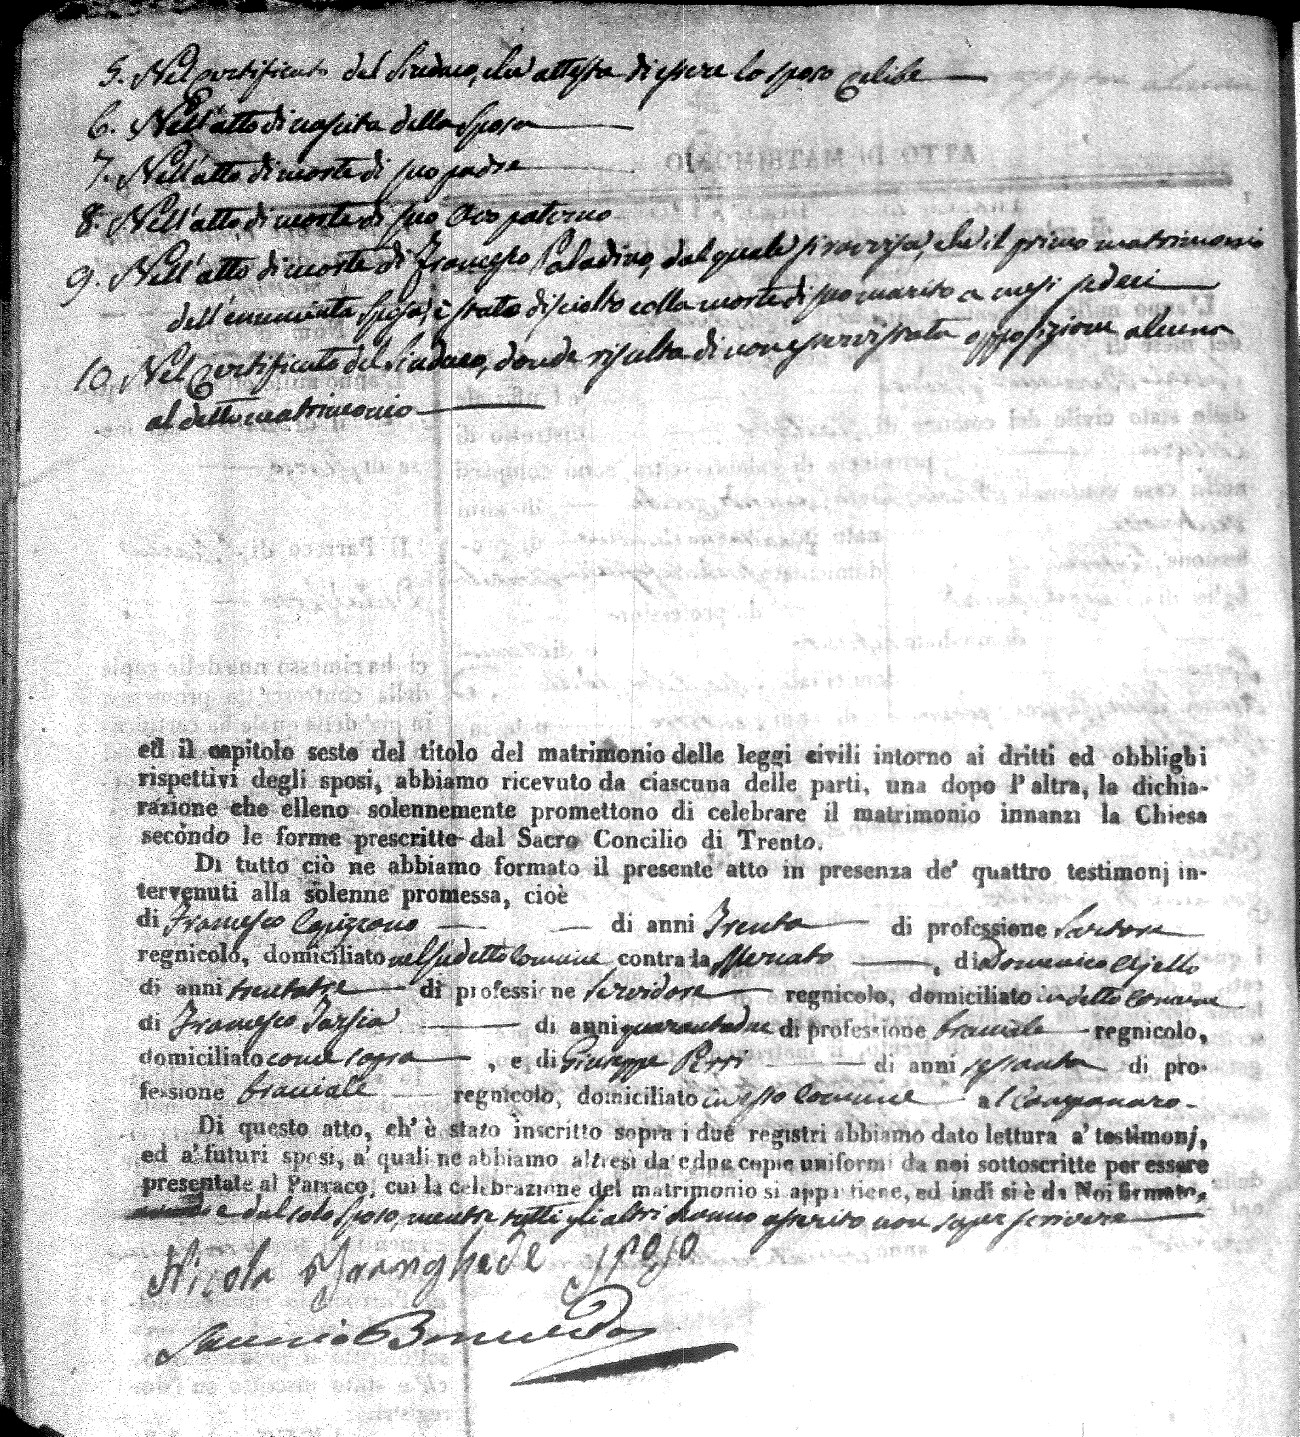 5. Nel Certificato del Sindaco, che attesta di essere lo sposo celibe
6. Nell'atto di nascita della Sposa
7. Nell'atto di morte di suo padre
8. Nell'atto di morte di suo Avo paterno
9. Nell'atto di morte di Francesco Paladino, dal quale si ravvisa, che il primo matrimonio
dell'enunciata Sposa, è stato disciolto colla morte di suo marito a mesi sedeci
10. Nel Certificato del Sindaco, donde risulta di non esservi stata opposizione alcuna
al detto matrimonio
ed il capitolo sesto del titolo del matrimonio delle leggi civili intorno ai dritti ed obblighi
rispettivi degli sposi, abbiamo ricevuto da ciascuna delle parti, una dopo l'altra, la dichia-
razione che elleno solennemente promettono di celebrare il matrimonio innanzi la Chiesa
secondo le forme prescritte dal Sacro Concilio di Trento.
Di tutto ciò ne abbiamo formato il presente atto in presenza de' quattro testimonj in-
tervenuti alla solenne promessa, cioè
di Francesco Capizzano di anni Trenta di professione Sartore
regnicolo, domiciliato nel sudetto Comune contrada Mercato, di Domenico Ajello
di anni trentatre di professione Servidore regnicolo, domiciliato in detto Comune
di Francesco Tarsia di anni quarantadue di professione bracciale regnicolo,
domiciliato come sopra, e di Giuseppe Perri di anni sessanta di pro-
fessione bracciale regnicolo, domiciliato in esso Comune al Campanaro.
Di questo atto, ch' è stato inscritto sopra i due registri abbiamo dato lettura a' testimonj,
ed a' futuri sposi, a' quali ne abbiamo altresì date due copie uniformi da noi sottoscritte per essere
presentate al Parraco, cui la celebrazione del matrimonio si appartiene, ed indi si è da Noi firmato,
e dal solo sposo, mentre tutti gli altri hanno asserito non saper scrivere
Nicola sposo